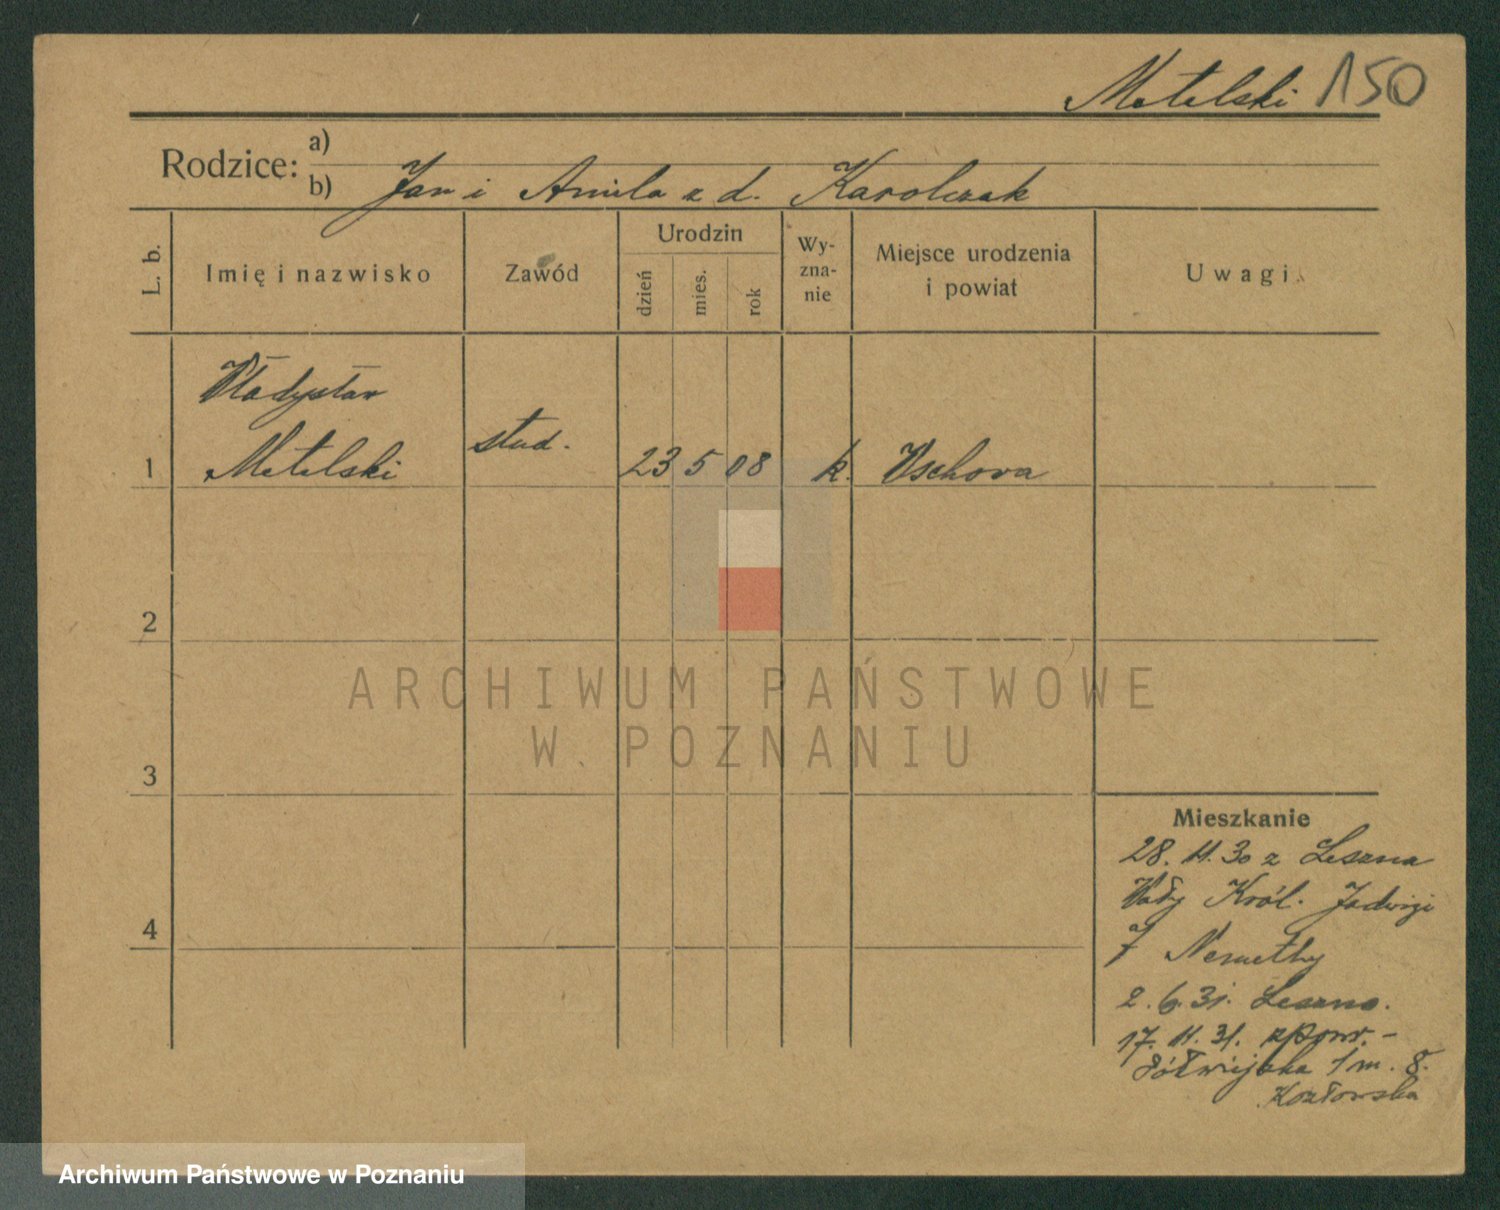 Metelski 150
Rodzice: a)
b) Jan i Aniela z d. Karolczak
L. b.
Imię i nazwisko
Zawód
Urodzin
dzień
mies.
rok
Wy-
zna-
nie
Miejsce urodzenia
i powiat
Uwagi
Władysław
1 Metelski stud. 23 5 08 k. Wschova
2
3
4
Mieszkanie
28. 11. 30 z Leszna
Wały Król. Jadwigi
7 Nemethy
2. 6. 31. Leszno.
17. 11. 31. z powr. -
Półwiejska 1 m. 8.
Kozłowska
ARCHIWUM PAŃSTWOWE
W POZNANIU
Archiwum Państwowe w Poznaniu